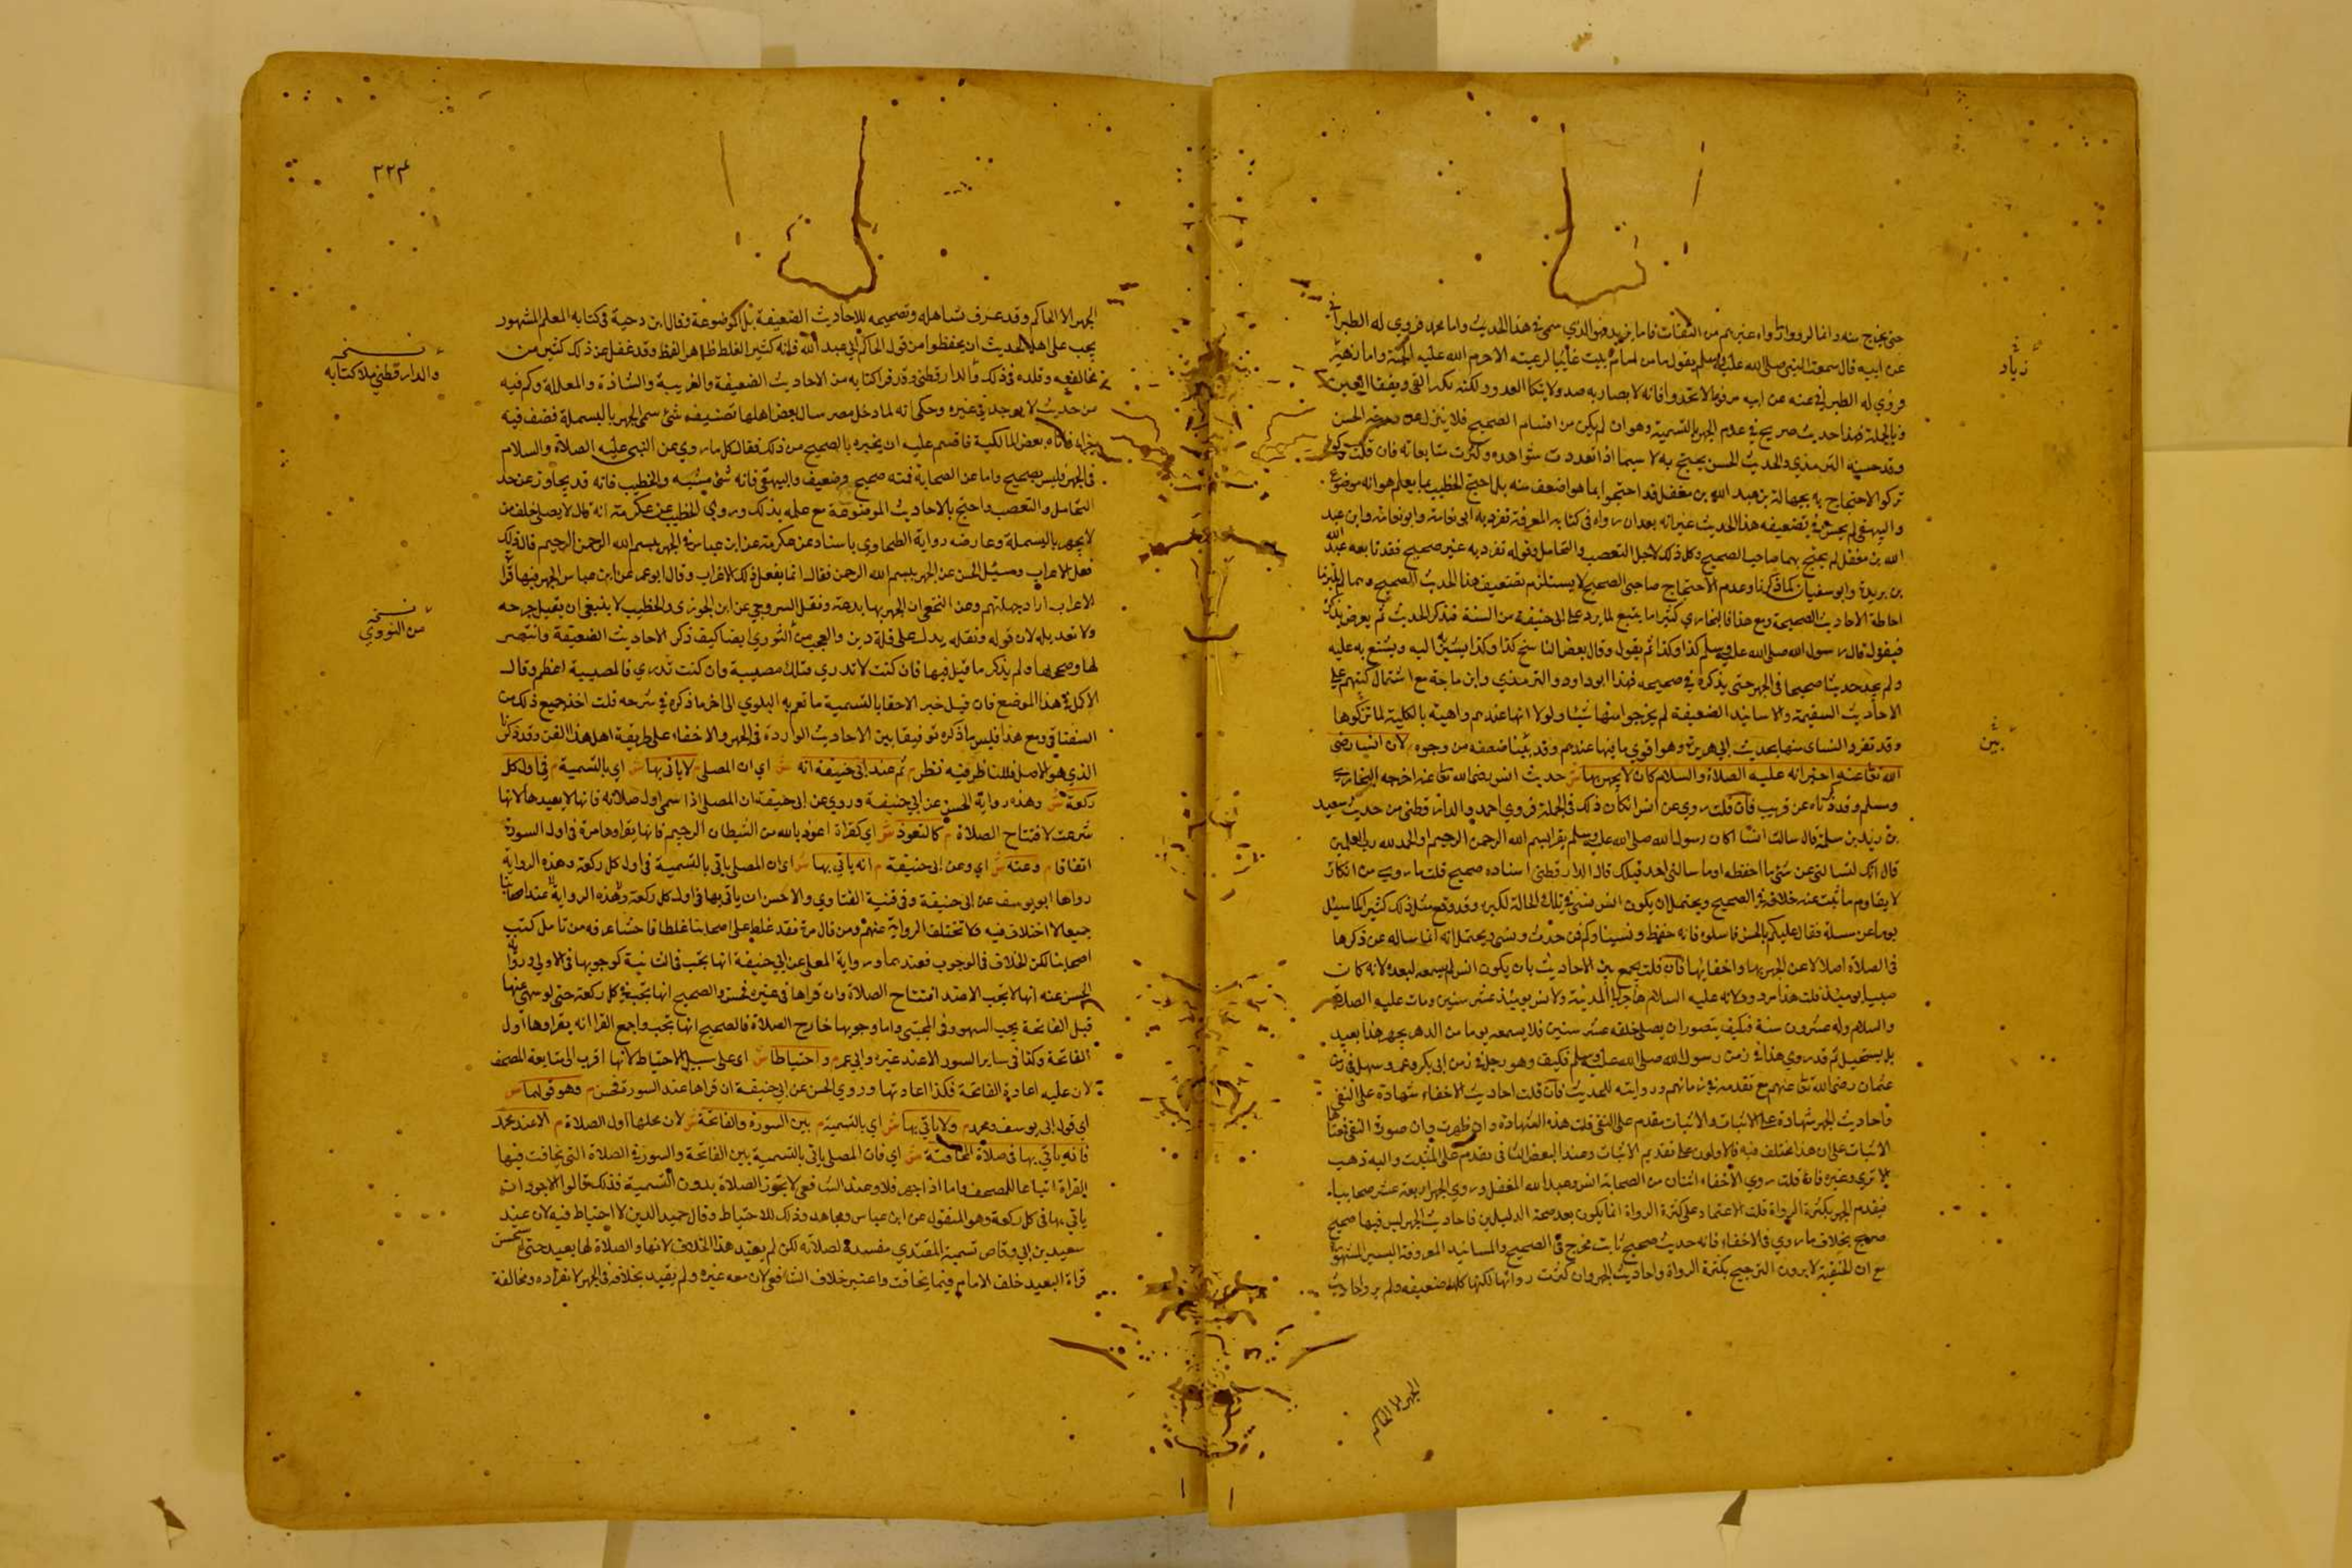 حتى يخرج منه وانما لرووا ما رواه غيرهم من الثقات فاما يزيد فهو الذي سمى في هذا الحديث واما محمد فروى له الطبراني
عن ابيه قال سمعت النبي صلى الله عليه وسلم يقول ما من امام يبيت غاشا لرعيته الا حرم الله عليه الجنة واما زياد
فروى له الطبراني عنه عن ابيه مرفوعا لا تخذفوا فانه لا يصاد به صيد ولا ينكا العدو ولكنه يكسر السن ويفقا العين
وبالجملة فهذا حديث صريح في عدم الجهر بالتسمية وهو وان لم يكن من اقسام الصحيح فلا ينزل عن درجة الحسن
وقد حسنه الترمذي والحديث الحسن يحتج به لا سيما اذا تعددت شواهده وكثرت متابعاته فان قلت
تركوا الاحتجاج به بجهالة بن عبد الله بن مغفل قد احتجوا بما هو اضعف منه بل احتج الخطيب بما يعلم هو انه موضوع
والبيهقي لم يحسن في تضعيفه هذا الحديث غير انه بعد ان رواه في كتابه المعرفة تفرد به ابو نعامة وابو نعامة وابن عبد
الله بن مغفل لم يحتج بهما صاحبا الصحيح وكل ذلك لاجل التعصب والتحامل وقوله تفرد به غير صحيح فقد تابعه عبد الله
بن بريدة وابو سفيان كما ذكرنا وعدم الاحتجاج صاحبي الصحيح لا يستلزم تضعيف هذا الحديث الصحيح وهما لم يلتزما
احاطة الاحاديث الصحيحة ومع هذا فالبخاري كثيرا ما يتبع لما يرد على ابي حنيفة من السنة فيذكر الحديث ثم يعرض بذكره
فيقول قال رسول الله صلى الله عليه وسلم كذا وكذا ثم يقول وقال بعض الناس كذا وكذا يشير اليه ويشنع به عليه
ولم يجد حديثا صحيحا في الجهر حتى يذكره في صحيحه فهذا ابو داود والترمذي وابن ماجة مع اشتمال كتبهم على
الاحاديث السقيمة والاسانيد الضعيفة لم يخرجوا منها شيئا ولولا انها عندهم واهية بالكلية لما تركوها
وقد تفرد النساي منها بحديث ابي هريرة وهو اقوى ما فيها عندهم وقد بينا ضعفه من وجوه لان انسا رضى
الله تعا عنه اخبر انه عليه الصلاة والسلام كان لا يجهر بها ش حديث انس رضى الله تعا عنه اخرجه البخاري
ومسلم وقد ذكرناه عن قريب فان قلت روي عن انس انكار ذلك في الجملة فروي احمد والدار قطني من حديث سعيد
بن زيد بن سلمة قال سالت انسا اكان رسول الله صلى الله عليه وسلم يقرا بسم الله الرحمن الرحيم او الحمد لله رب العلمين
قال انك لتسالني عن شي ما احفظه او ما سالني احد قبلك قال الدار قطني اسناده صحيح قلت ما روي من انكاره
لا يقاوم ما ثبت عنه خلافه في الصحيح ويحتمل ان يكون انس نسي في تلك الحالة لكبره وقد وقع مثل ذلك كثيرا كما سئل
يوما عن مسئلة فقال عليكم بالحسن فاسلوه فانه حفظ ونسينا وكم من حدث ونسي ويحتمل انه انما ساله عن ذكرها
في الصلاة اصلا لا عن الجهر بها واخفايها فان قلت يجمع بين الاحاديث بان يكون انس لم يسمعه لبعده لانه كان
صبيا يومئذ قلت هذا مردود لانه عليه السلام هاجر الى المدينة ولانس يومئذ عشر سنين ومات عليه الصلاة
والسلام وله عشرون سنة فكيف يتصور ان يصلي خلفه عشر سنين فلا يسمعه يوما من الدهر يجهر هذا بعيد
بل يستحيل ثم قد روي هذا في زمن رسول الله صلى الله عليه وسلم فكيف وهو رجل في زمن ابي بكر وعمر وسهل في زمن
عثمان رضى الله تعا عنهم مع تقدمه في زمانهم وروايته للحديث فان قلت احاديث الاخفاء شهادة على النفي
واحاديث الجهر شهادة على الاثبات والاثبات مقدم على النفي قلت هذه الشهادة وان ظهرت وان صورة النفي فمعناها
الاثبات على ان هذا مختلف فيه فالاولون على تقديم الاثبات وعند البعض النافي مقدم على المثبت واليه ذهب
وغيره فان قلت روي الاخفاء اثنان من الصحابة انس وعبد الله المغفل وروي الجهر اربعة عشر صحابيا
فيقدم الجهر بكثرة الرواة قلت الاعتماد على كثرة الرواة انما يكون بعد صحة الدليلين فاحاديث الجهر ليس فيها صحيح
صريح بخلاف ما روي في الاخفاء فانه حديث صحيح ثابت مخرج في الصحيح والمسانيد المعروفة
مع ان الحنفية لا يرون الترجيح بكثرة الرواة واحاديث الجهر وان كثرت رواتها لكنها كلها ضعيفه ولم يرو احاديث
في
زياد
بين
الجهر الا الحاكم
٢٢٣
الجهر الا الحاكم وقد عرف تساهله وتصحيحه للاحاديث الضعيفة بل الموضوعة وقال ابن دحية في كتابه المعلم المشهور
يجب على اهل الحديث ان يحفظوا من قول الحاكم ابي عبد الله فانه كثير الغلط ظاهر اللفظ وقد غفل عن ذلك كثير من
وقلده في ذلك والدار قطني وقد قرا كتابه من الاحاديث الضعيفة والغريبة والشاذة والمعللة وكم فيه
من حديث لا يوجد في غيره وحكى انه لما دخل مصر سال بعض اهلها تصنيف شئ سمى الجهر بالبسملة فصنف فيه
جزاء فاتاه بعض المالكية فاقسم عليه ان يخبره بالصحيح من ذلك فقال كل ما روي عن النبي عليه الصلاة والسلام
في الجهر فليس بصحيح واما عن الصحابة فمنه صحيح وضعيف والبيهقي فانه والخطيب فانه قد يجاوز عن حد
التحامل والتعصب واحتج بالاحاديث الموضوعة مع علمه بذلك وروي الخطيب عن عكرمة انه قال لا يصلى خلف من
لا يجهر بالبسملة وعارضه رواية الطحاوي باسناده عن عكرمة عن ابن عباس في الجهر ببسم الله الرحمن الرحيم قال ذلك
فعل الاعراب وسئل الحسن عن الجهر ببسم الله الرحمن فقال انما يفعل ذلك الاعراب وقال ابو عمر عن ابن عباس الجهر بها قراءة
الاعراب اراد جهلتهم وعن النخعي ان الجهر بها بدعة ونقل السروجي عن ابن الجوزي والخطيب لا ينبغي ان يقبل جرحه
ولا تعديله لان قوله ونقله يدل على قلة دين والعجب من النوري ايضا كيف ذكر الاحاديث الضعيفة وانتصر
لها وصححها ولم يذكر ما قيل فيها فان كنت لا تدري فتلك مصيبة وان كنت تدري فالمصيبة اعظم وقال
الاكمل في هذا الموضع فان قيل خبر الاخفا بالتسمية مما تعم به البلوي الى اخر ما ذكره في شرحه قلت اخذ جميع ذلك من
السغناقي ومع هذا فليس ما ذكره توفيقا بين الاحاديث الواردة في الجهر والاخفاء على طريقة اهل هذا الفن وقد ذكرنا
الذي هو الاصل فللناظر فيه نظر م ثم عند ابي حنيفة انه ش اي ان المصلي م لا ياتي بها ش اي بالتسمية م في اول كل
ركعة ش وهذه رواية الحسن عن ابي حنيفة وروي عن ابي حنيفة ان المصلي اذا سمى اول صلاته فانها لا يعيدها لانها
شرعت لافتتاح الصلاة م كالتعوذ ش اي كقراة اعوذ بالله من الشيطان الرجيم فانها يقراوها مرة في اول السورة
اتفاقا م وعنه ش اي وعن ابي حنيفة م انه ياتي بها ش اي ان المصلي ياتي بالتسمية في اول كل ركعة وهذه الرواية
رواها ابو يوسف عن ابي حنيفة وفي قنية الفتاوي والاحسن ان ياتي بها في اول كل ركعة وهذه الرواية عند اصحابنا
جميعا لا اختلاف فيه فلا تختلف الرواية عنهم ومن قال مرة فقد غلط على اصحابنا غلطا فاحشا عرفه من تامل كتب
اصحابنا لكن الخلاف في الوجوب فعندهما ورواية المعلى عن ابي حنيفة انها تجب في الثانية كوجوبها في الاولى ورواية
الحسن عنه انها لا تجب الا عند افتتاح الصلاة وان قراها في غيره فحسن والصحيح انها تجب في كل ركعة حتى لو سهى عنها
قبل الفاتحة يجب السهو وفي المجتبى واما وجوبها خارج الصلاة فالصحيح انها تجب واجمع القراء انه يقراوها اول
الفاتحة وكذا في ساير السور الا عند غيره وابي عمر م واحتياطا ش اي على سبيل الاحتياط لانها اقرب الى متابعة المصحف
لان عليه اعادة الفاتحة فكذا اعادتها وروي الحسن عن ابي حنيفة ان قراها عند السورة فحسن م وهو قولهما ش
اي قول ابي يوسف ومحمد م ولا ياتي بها ش اي بالتسمية م بين السورة والفاتحة ش لان محلها اول الصلاة م الا عند محمد
فانه ياتي بها في صلاة المخافتة ش اي فان المصلي ياتي بالتسمية بين الفاتحة والسورة في الصلاة التي يخافت فيها
القراة اتباعا للمصحف واما اذا جهر فلا وعند الشافعي لا يجوز الصلاة بدون التسمية فلذلك قالوا الاجود ان
ياتي بها في كل ركعة وهو المنقول عن ابن عباس ومجاهد وذلك للاحتياط وقال حميد الدين لا احتياط فيه لان عند
سعيد بن ابي وقاص تسمية المقتدي مفسدة لصلاته لكن لم يعتبر هذا الخلاف لانها والصلاة لها بعيد حتى لم يستحسن
قراة البعيد خلف الامام فيما يخافت واعتبر خلاف الشافعي لان معه غيره ولم يقيد بخلافه في الجهر لانفراده ومخالفة
نسخه
والدار قطني ملا كتابه
نسخه
من النووي